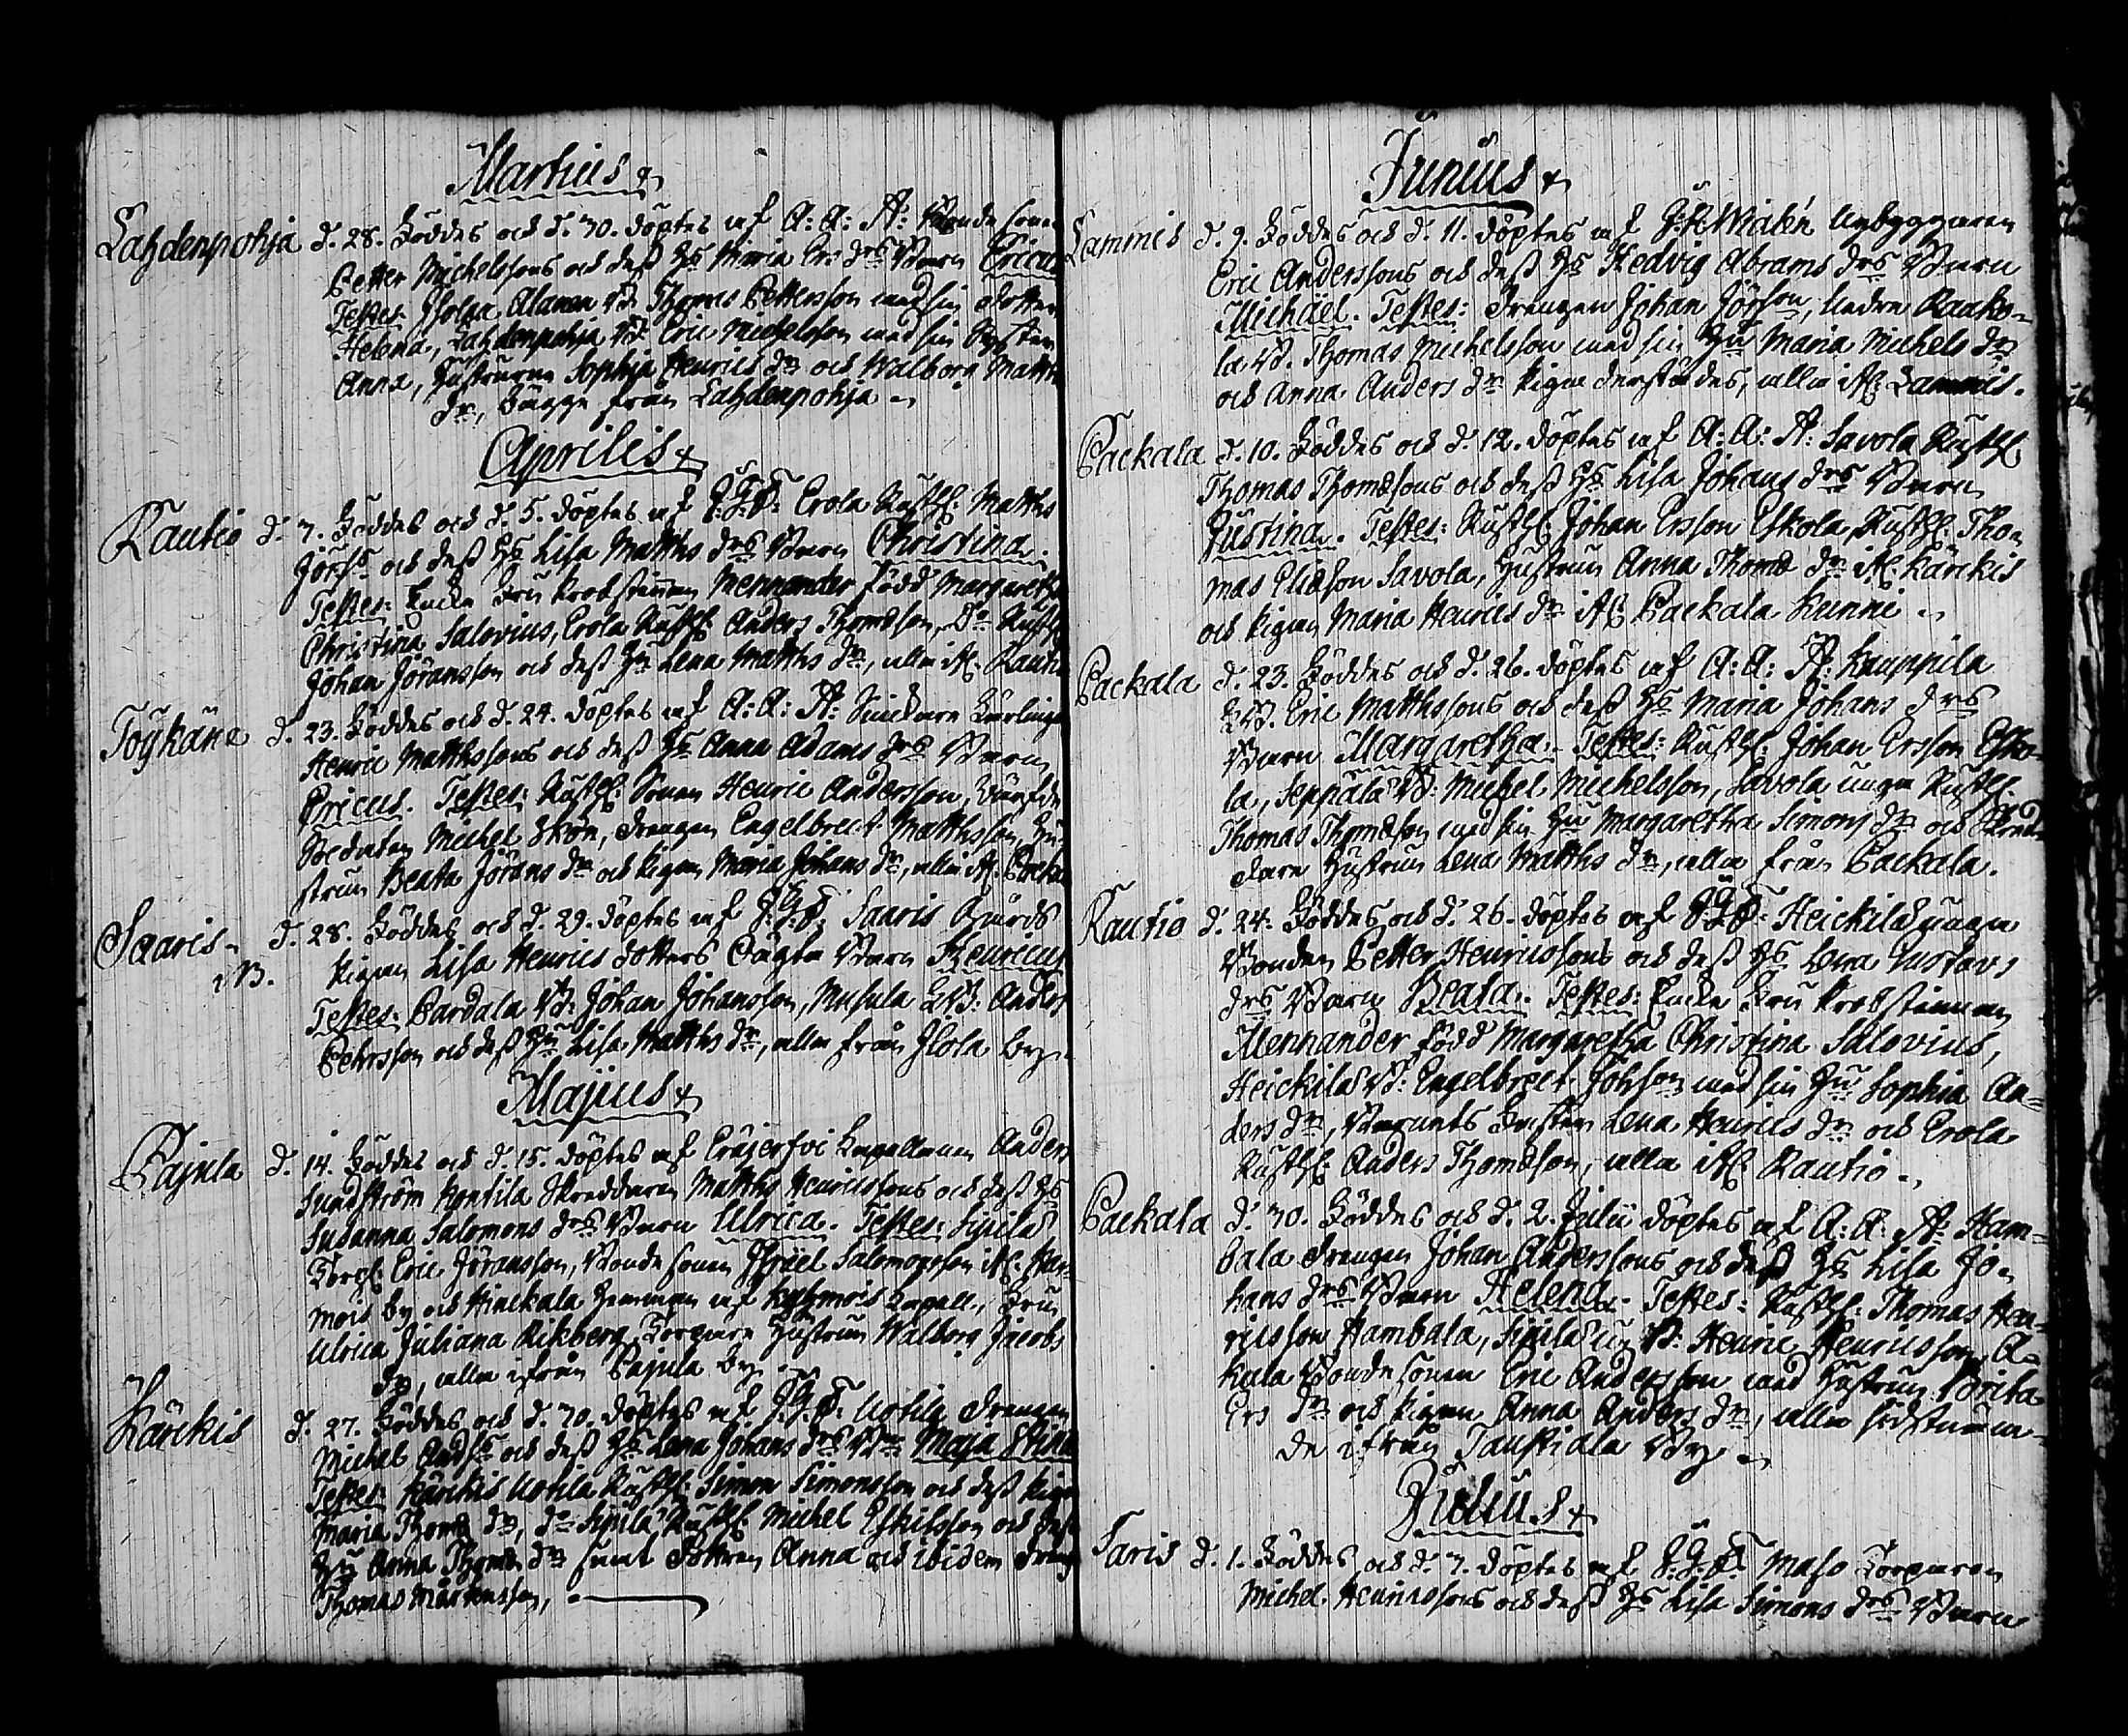 Martius
Lahdenpohja d. 28. Föddes och d. 30. döptes af A: A: A: Bondesonen
Petter Michelssons och dess Hs Maria Ers drs Barn Ericus
Testes: Alanen Thomas Pettersson med sin dotter
Helena, Lahdenpohja Bd. Eric Michelsson med sin Syster
Anna, Hustrurna Sophja Henrics dr och Walborg Matths
dr, bägge från Lahdenpohja
Aprilis
Rautio d. 3. Föddes och d. 5. döptes af Erola Rusth. Matths
Görss och dess Hs Lisa Matths drs Barn Christina.
Testes: Enke Fru Probstinnan Mennander född Margaretha
Christina Salovius, Erola Rusth. Anders Thomæson, do Rusth.
Johan Jöransson och dess Hu Lena Matths dr, alla i Rautio
Töykäne d. 23. Föddes och d. 24. döptes af A: A: A:
Henric Matthssons och dess Hu Anna Adams drs Barn
Ericus. Testes: Rusth. Sonen Henric Andersson,
Michel Skön, drengen Engelbrect Matthsson, Hu-
strun Beata Jörans dr och pigan Maria Johans dr, alla
Saaris d. 28. Föddes och d. 29. döptes af Saaris Gårds
pigan Lisa Henrics dotters oägta Barn Henricus
Testes: Pardala Bd: Johan Johansson, Musula Anders
Pehrsson och dess Hu Lisa Matths dr, alla från Ilola by.
Majus
Pajula d. 14. Föddes och d. 15. döptes af Eräjerfvi Kapellanen Anders
Sundström Kontila Skreddaren Matths Henricssons och dess Hs
Susanna Salomons drs Barn Ulrica. Testes: Sipilä
Torp. Eric Jöransson, Bondesonen Israel Salomonsson
mois by och Hinckala af Kuhmois Kapell, Fru
Ulrica Juliana Rikberg, Torpare Hustrun Walborg Jacobs
dr, alla ifrån Pajula by
Kärckis d. 27. Föddes och d. 30. döptes af Uotila drengen
Michel Andss och dess Hs Lena Johans drs Barn Maja Stina
Testes: Kärckis Uotila Rusth. Simon Simonsson och dess piga
Maria Thomæ dr, do Sipilä Rusth. Michel Eskilsson och dess
Hu Anna Thomæ dr samt dottren Anna och ibidem dreng
Thomas Mårtensson,
Junius
Lammis d. 9. Föddes och d. 11. döptes af Widén Nybyggaren
Eric Anderssons och dess Hs Hedvig Abrams drs Barn
Michäel. Testes: drengen Johan Jörson, Nedre Raako-
la Bd. Thomas Michelsson med sin Hu Maria Michels dr
och Anna Anders dr pigan derstädes, alla i Lammis.
Packala d. 10. Föddes och d. 12. döptes af A: A: A: Savola Rusth.
Thomas Thomæsons och dess Hs Lisa Johans drs Barn
Justina. Testes: Rusth. Johan Ersson Eskola, Rusth. Tho-
mas Eliæson Savola, Hustrun Anna Thomæ dr i Kärckis
och pigan Maria Henrics dr i Packala Kunni
Packala d. 23. Föddes och d. 26. döptes af A: A: A: Kauppila
Bd. Eric Matthssons och dess Hs Maria Johans drs
Barn Margaretha. Testes: Rusth. Johan Ersson Esko-
la, Seppälä Bd: Michel Michelsson, Savola unga Rusth.
Thomas Thomæson med sin Hu Margaretha Simons dr och Skred-
dare Hustrun Lena Matths dr, alla från Packala.
Rautio d. 24. Föddes och d. 26. döptes af Heickilä unga
Bonden Petter Henricssons och dess Hs Lena Gustavs
drs Barn Beata. Testes: Enke Fru Probstinnan
Mennander född Margaretha Christina Salovius,
Heickilä Bd: Engelbrect Johsson med sin Hu Sophia An-
ders dr, Barnets Faster Lena Henrics dr och Erola
Rusth. Anders Thomæson, alla i Rautio.
Packala d. 30. Föddes och d. 2. Julii döptes af A: A: A: Ham-
bala drengen Johan Anderssons och dess Hs Lisa Jo-
hans drs Barn Helena. Testes: Rusth. Thomas Hen-
ricsson Hambala, Sipilä Bd: Henric Henricsson, A-
kula Bondesonen Eric Andersson med Hustrun Brita
Ers dr och pigan Anna Anders dr, alla sidstnäm-
de ifrån Taustiala By
Julius
Saris d. 1. Föddes och d. 3. döptes af Maso Torparen
Michel Henricssons och dess Hs Lisa Simons drs Barn